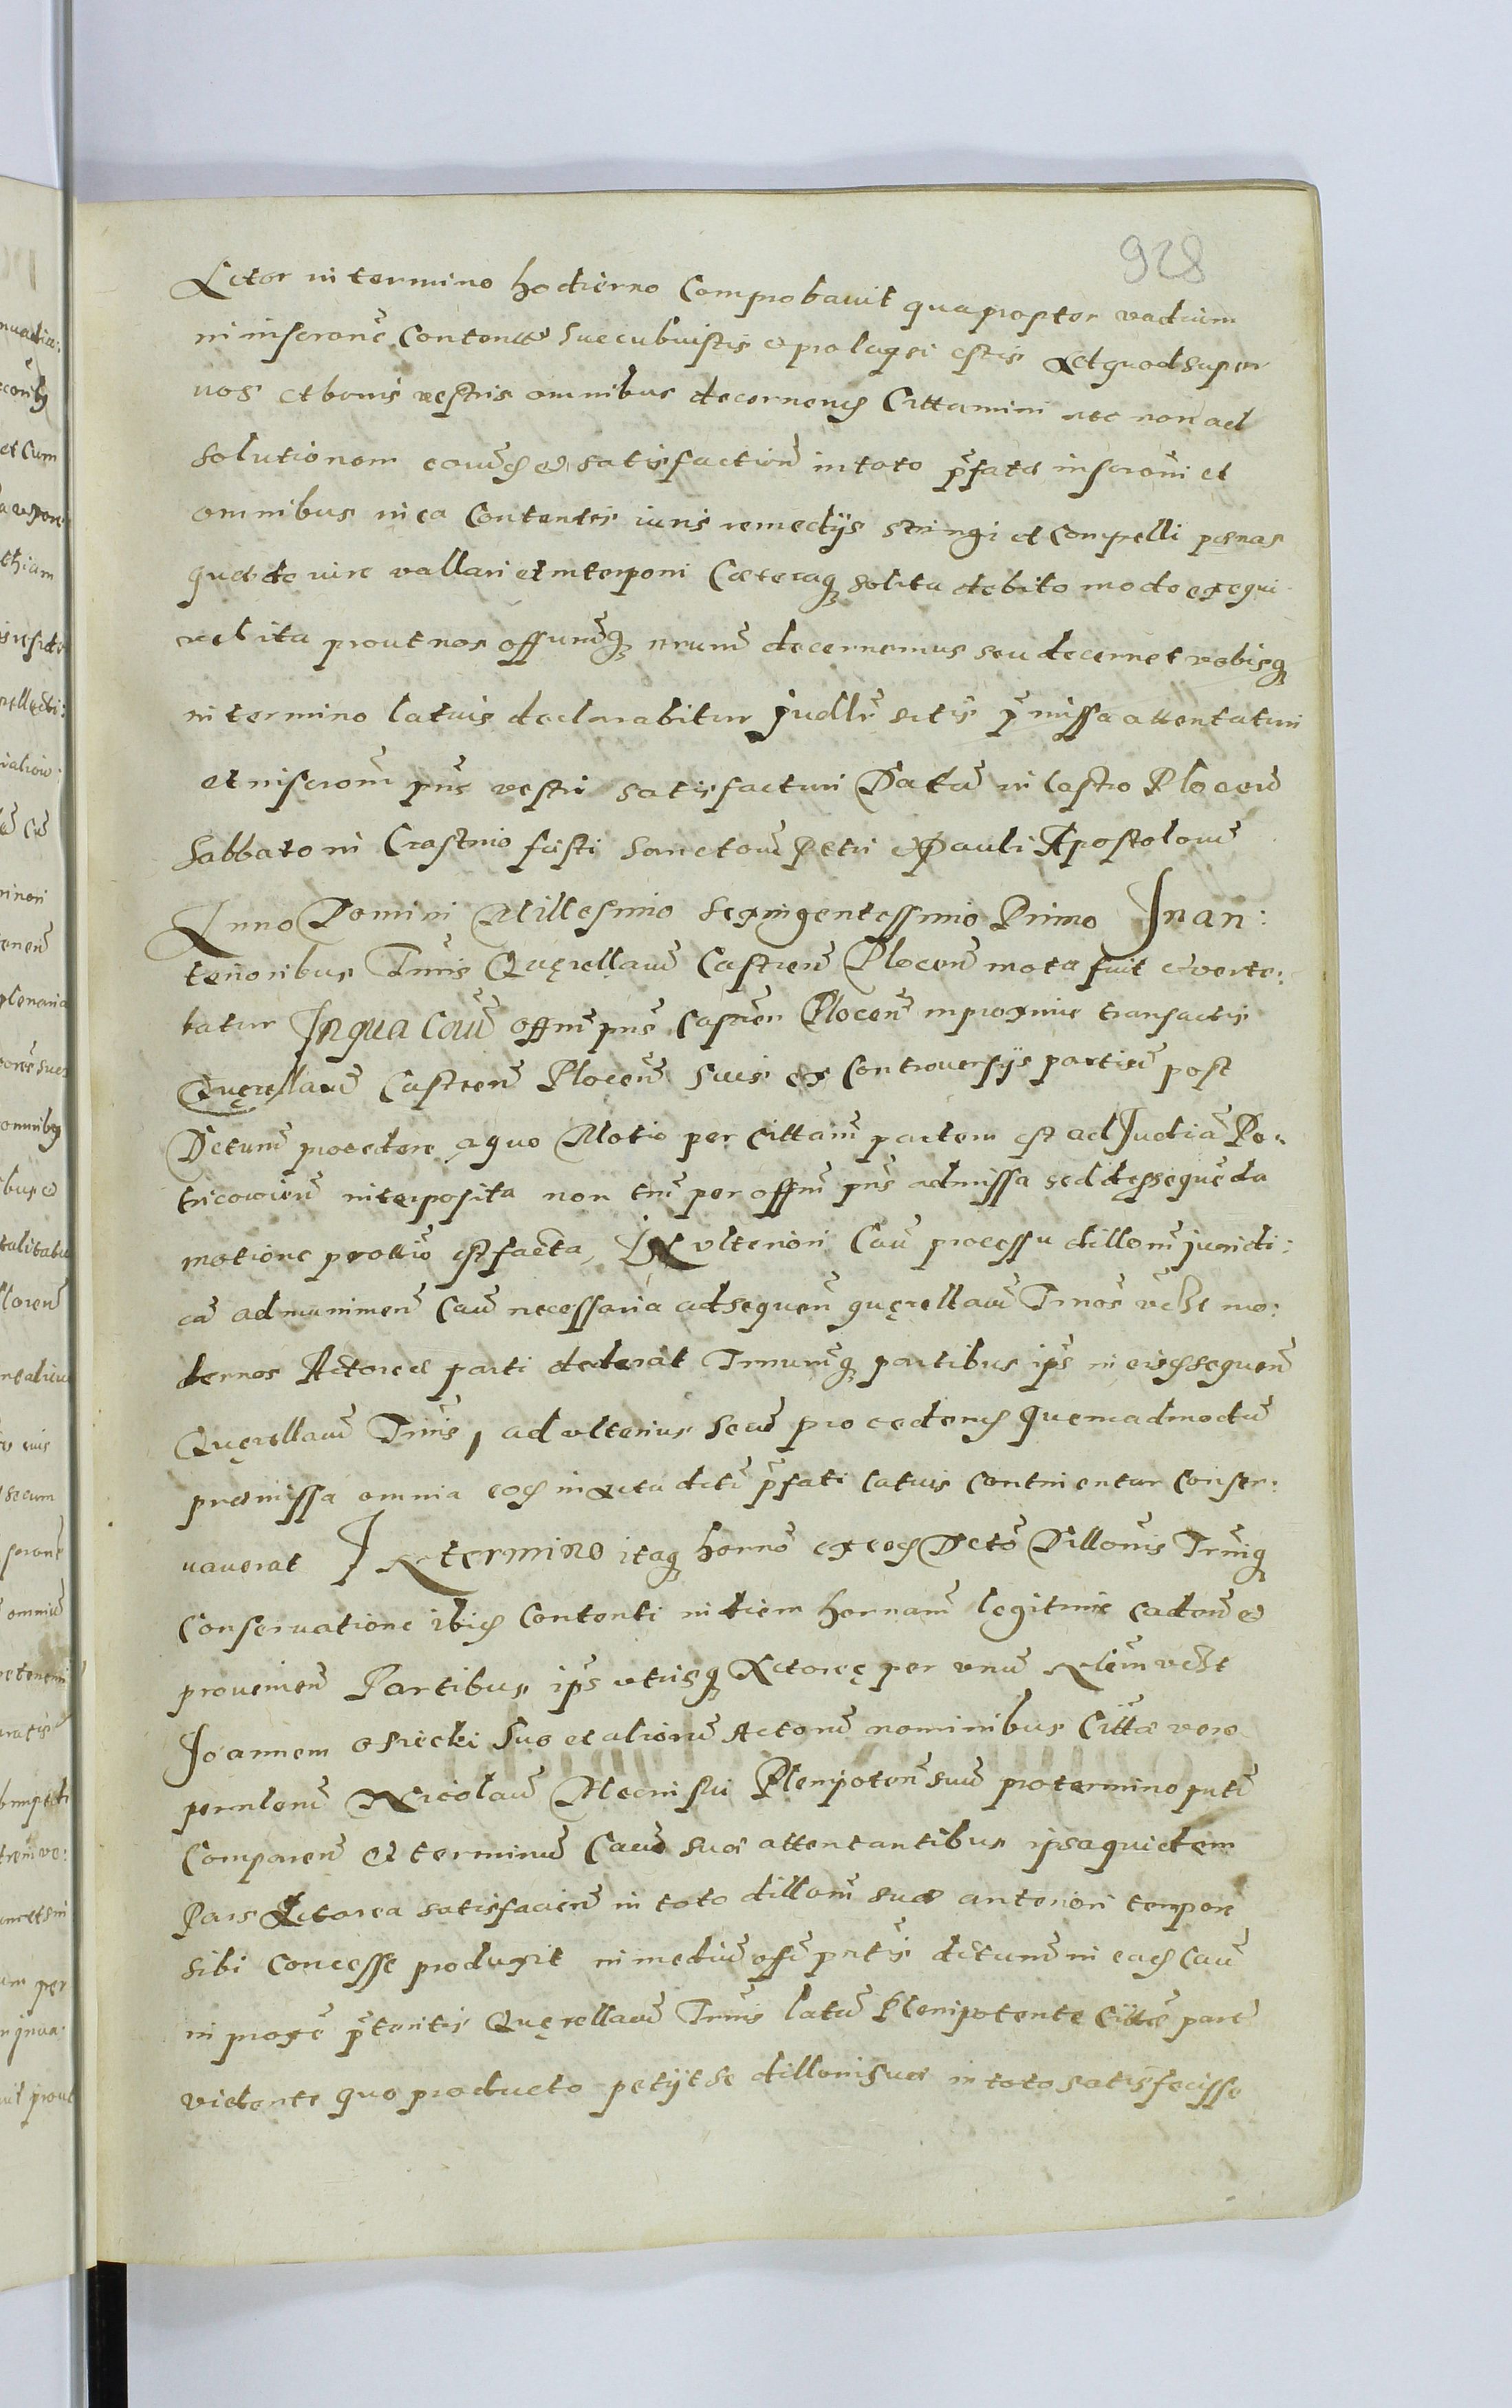 928
Actor in termino hodierno Comprobavit quapropter vadium
in inscrone Contentu Succubuistis et prolapsi estis Et quod super
vos et bonis vestris omnibus decernens Cittamini nec non ad
solutionem et satisfaction in toto pfatae inscroni et
omnibus in ea Contentis iuris remedijs stringi et Compelli poenas
quae de iure vallari et interponi Caeteraq solita debito modo exequi
vel ita prout nos offiumq nrum decernemus seu decernet vobisq
in termino latius declarabitur Judlr sitis pmissa attentaturi
et inscroni pns vestri satisfacturi Datu in Castro Plocen
Sabbato in Crastino festi Sanctoru Petri et Pauli Apostoloru
Anno Domini Millesimo Sexingentessimo Primo In an:
terioribus Tmis Quęrellaru Castren Plocen mota fuit et verte:
batur In qua Cau offm pns Castren Plocen in proxime transactis
Quęrellaru Castren Plocen Suis ex Controversijs partiu post
Dctum procedere a quo Motio per Cittam partem est ad Judia Pe:
tricovien interposita non tm per offm pns admissa sed
motione est facta, In ulteriori Cau processu dillom juridi:
ca ad munimen Cau necessaria ad sequen quęrellaru Tmos vdzt mo:
dernos Actoreae parti dederat Tmumq partibus ips in sequen
Quęrellaru Tmis, ad ulterius Secu procedens quemadmodu
praemissa omnia in Actu dcti pfati latius Continentur Conser:
vaverat In termino itaq horno ex Dcto Dillonis Tmiq
Conservatione Contenti in diem hornam legitime Caden et
provenien Partibus ips utrisq Actoreę per unu Nlem vdzt
Joannem Osiecki Suo et alioru Actoru nominibus Cittae vero
pernlem Nicolau Plenipoten suu pro termino
Comparen Et terminu Cau Suae attentantibus ipsa quidem
Pars Actorea satisfacien in toto dillom suae anteriori tempore
sibi Concesse produxit in mediu offi pntis dctum in Cau
in proxe pteritis Quęrellaru Tmis latu Plenipotente Cittae parte
vidente quo producto petijt se dilloni suae in toto satisfecisse